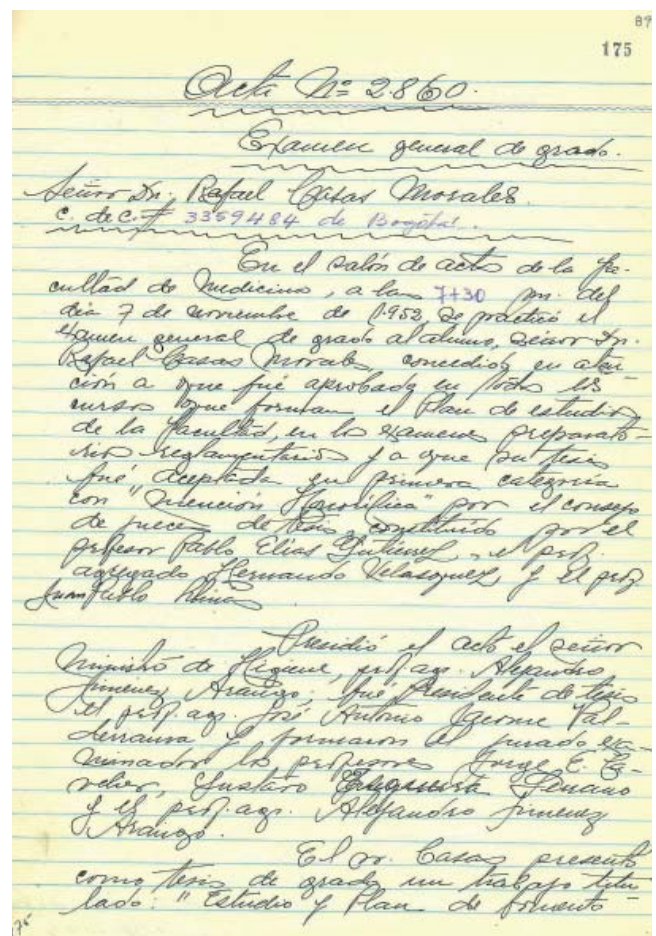 89
175
Acta Nº 2.860.
Examen general de grado.
Señor Dn. Rafael Casas Morales.
c. de c. # 3359484 de Bogotá.
En el salón de actos de la Fa-
cultad de Medicina, a las 7+30 pm. del
dia 7 de noviembre de 1.952, se practicó el
examen general de grado al alumno, señor Dn.
Rafael Casas Morales, concedido en aten-
ción a que fué aprobado en todos los
cursos que forman el Plan de estudios
de la Facultad, en los examenes preparato-
rios reglamentarios y a que su tesis
fué aceptada en primera categoria
con "Mención Honorífica" por el consejo
de jueces de tesis, constituído por el
profesor Pablo Elias Gutierrez, el prof.
agregado Hernando Velasquez y el prof
Juan Pablo
Presidió el acto el señor
Ministro de Higiene, prof. ag. Alejandro
Jimenez Arango; fué Presidente de tesis
el prof. ag. José Antonio Jacome Val-
derrama y formaron el jurado exa-
minador los profesores Jorge E. Ca-
velier, Gustavo Serrano
y el prof. ag. Alejandro Jimenez
Arango.
El sr. Casas presentó
como tesis de grado un trabajo titu-
lado: "Estudio y Plan de fomento